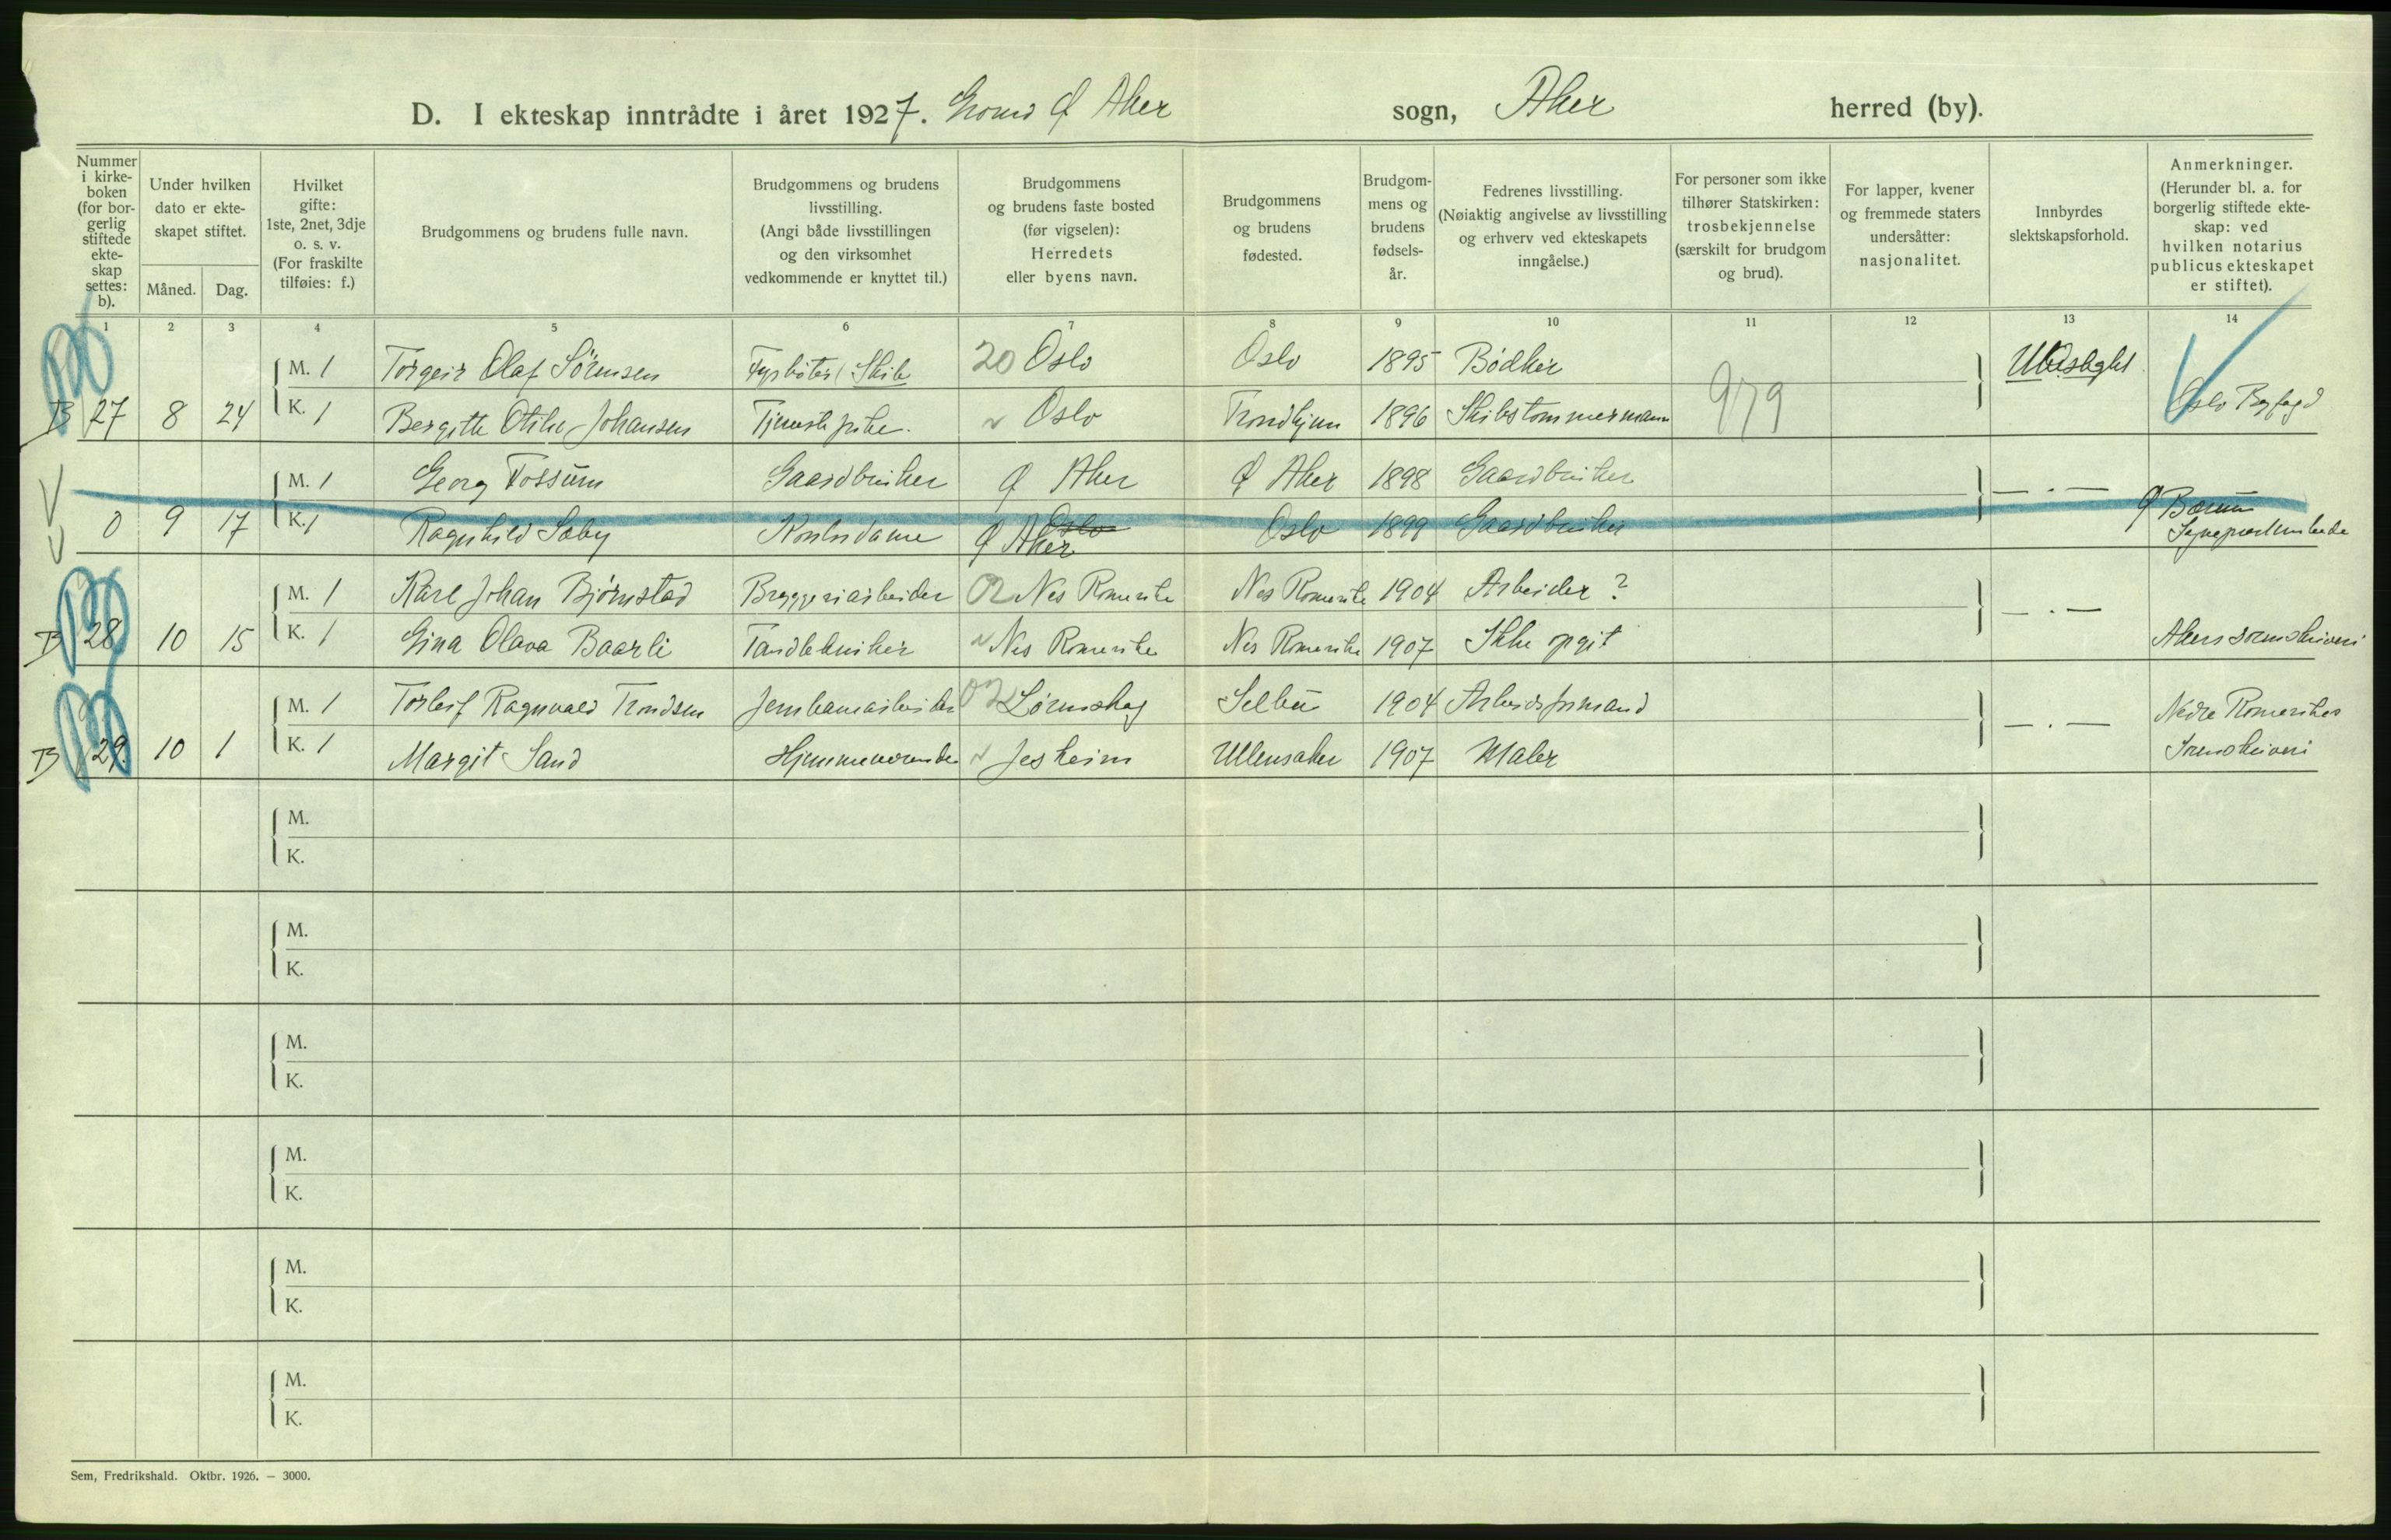 D. I ekteskap inntrådte i året 1927. Grorud Ø Aker sogn, Aker herred (by).
Nummer i kirkeboken (for borgerlig stiftede ekteskap settes: b).
Under hvilken dato er ekteskapet stiftet.
Måned. Dag.
Hvilket gifte: 1ste, 2net, 3dje o. s. v. (For fraskilte tilføies: f.)
Brudgommens og brudens fulle navn.
Brudgommens og brudens livsstilling. (Angi både livsstillingen og den virksomhet vedkommende er knyttet til.)
Brudgommens og brudens faste bosted (før vigselen): Herredets eller byens navn.
Brudgommens og brudens fødested.
Brudgommens og brudens fødselsår.
Fedrenes livsstilling. (Nøiaktig angivelse av livsstilling og erhverv ved ekteskapets inngåelse.)
For personer som ikke tilhører Statskirken: trosbekjennelse (særskilt for brudgom og brud).
For lapper, kvener og fremmede staters undersåtter: nasjonalitet.
Innbyrdes slektskapsforhold.
Anmerkninger. (Herunder bl. a. for borgerlig stiftede ekteskap: ved hvilken notarius publicus ekteskapet er stiftet).
1 2 3 4 5 6 7 8 9 10 11 12 13 14
M. 1 Torgeir Olaf Sörensen Fyrbøter Skib 20 Oslo Oslo 1895 Bødker Ubeslægtet
B 27 8 24 K. 1 Bergitte Otilie Johansen Tjenestepike. Oslo Trondhjem 1896 Skibstømmermann 979 Oslo Byfogd
M. 1 Georg Fossum Gaardbruker Ø Aker Ø Aker 1898 Gaardbruker — . —
0 9 17 K. 1 Ragnhild Soby Kontordame Oslo Ø Aker Oslo 1899 Gaardbruker Bærum Sogneprestembede
M. 1 Kåre Johan Bjørnstad Bryggeriarbeider 02 Nes Romerike Nes Romerike 1904 Arbeider ? — . —
B 28 10 15 K. 1 Gina Olava Baarli Tandtekniker Nes Romerike Nes Romerike 1907 Ikke opgit Akers sorenskriveri
M. 1 Torleif Ragnvald Trondsen Jernbanearbeider 02 Lørenskog Selbu 1904 Arbeidsformand — . — Nedre Romerikes
B 29. 10 1 K. 1 Margit Sand Hjemmeværende Jesheim Ullensaker 1907 Maler Sorenskriveri
M.
K.
M.
K.
M.
K.
M.
K.
M.
K.
M.
K.
Sem, Fredrikshald. Oktbr. 1926. — 3000.